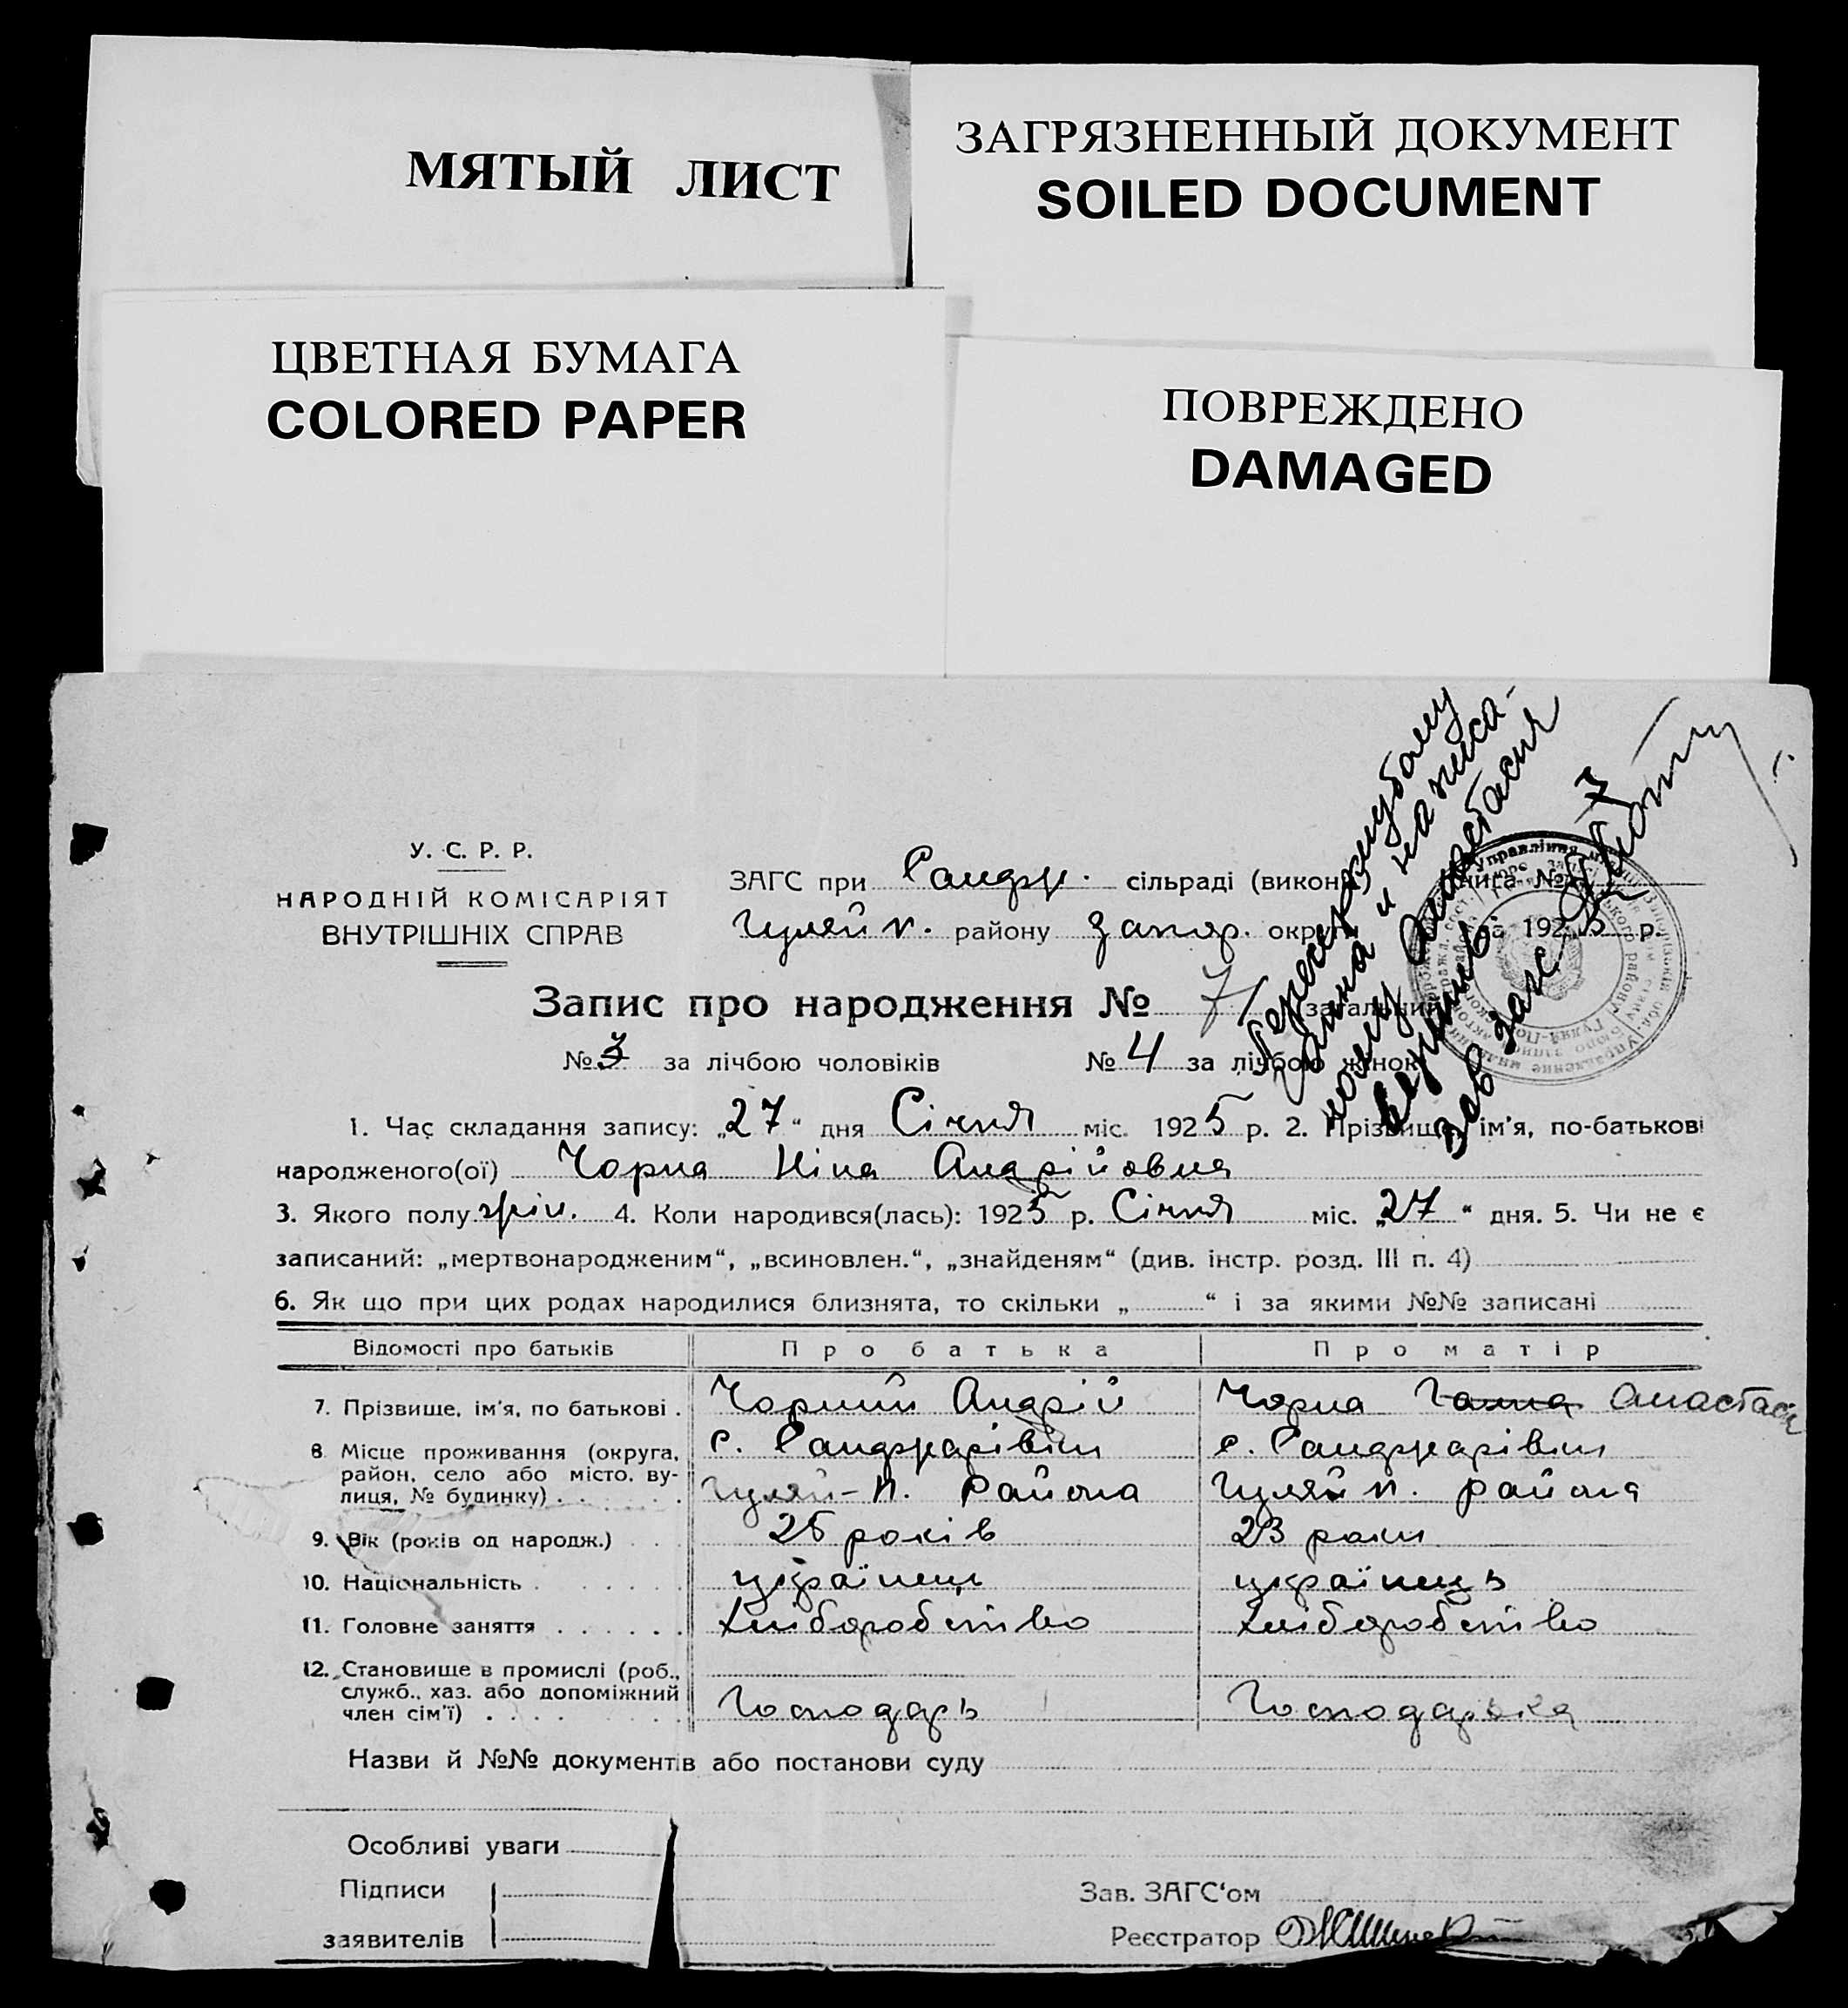 МЯТЫЙ ЛИСТ
ЗАГРЯЗНЕННЫЙ ДОКУМЕНТ
SOILED DOCUMENT
ЦВЕТНАЯ БУМАГА
COLORED PAPER
ПОВРЕЖДЕНО
DAMAGED
У. С. Р. Р.
НАРОДНІЙ КОМІСАРІЯТ
ВНУТРІШНІХ СПРАВ
ЗАГС при сільраді (виконк)
Гуляй п. району Запор. округи 1925 р.
Запис про народження № 7 загальний
№ 3 за лічбою чоловіків № 4 за лічбою жінок
1. Час складання запису: „27“ дня Січня міс. 1925 р. 2. Прізвище, ім'я, по-батькові
народженого(ої) Чорна Ніна Андрійовна
3. Якого полу жін. 4. Коли народився(лась): 1925 р. Січня міс. „27“ дня. 5. Чи не є
записаний: „мертвонародженим“, „всиновлен.“, „знайденям“ (див. інстр. розд. III п. 4)
6. Як що при цих родах народилися близнята, то скільки „ “ і за якими №№ записані
Відомості про батьків Про батька Про матір
7. Прізвище, ім'я, по батькові . Чорний Андрій Чорна Ганна Анастасія
8. Місце проживання (округа,
район, село або місто, ву-
лиця, № будинку) . . . . . .
с.
Гуляй-п. района
с.
Гуляй п. района
9. Вік (років од народж.) . . . 25 років 23 роки
10. Національність . . . . . . українець українець
11. Головне заняття . . . . . . хліборобство хліборобство
12. Становище в промислі (роб.,
служб., хаз. або допоміжний
член сім'ї) . . . . Господарь Господарька
Назви й №№ документів або постанови суду
Особливі уваги
Підписи
заявителів
Зав. ЗАГС‘ом
Реєстратор